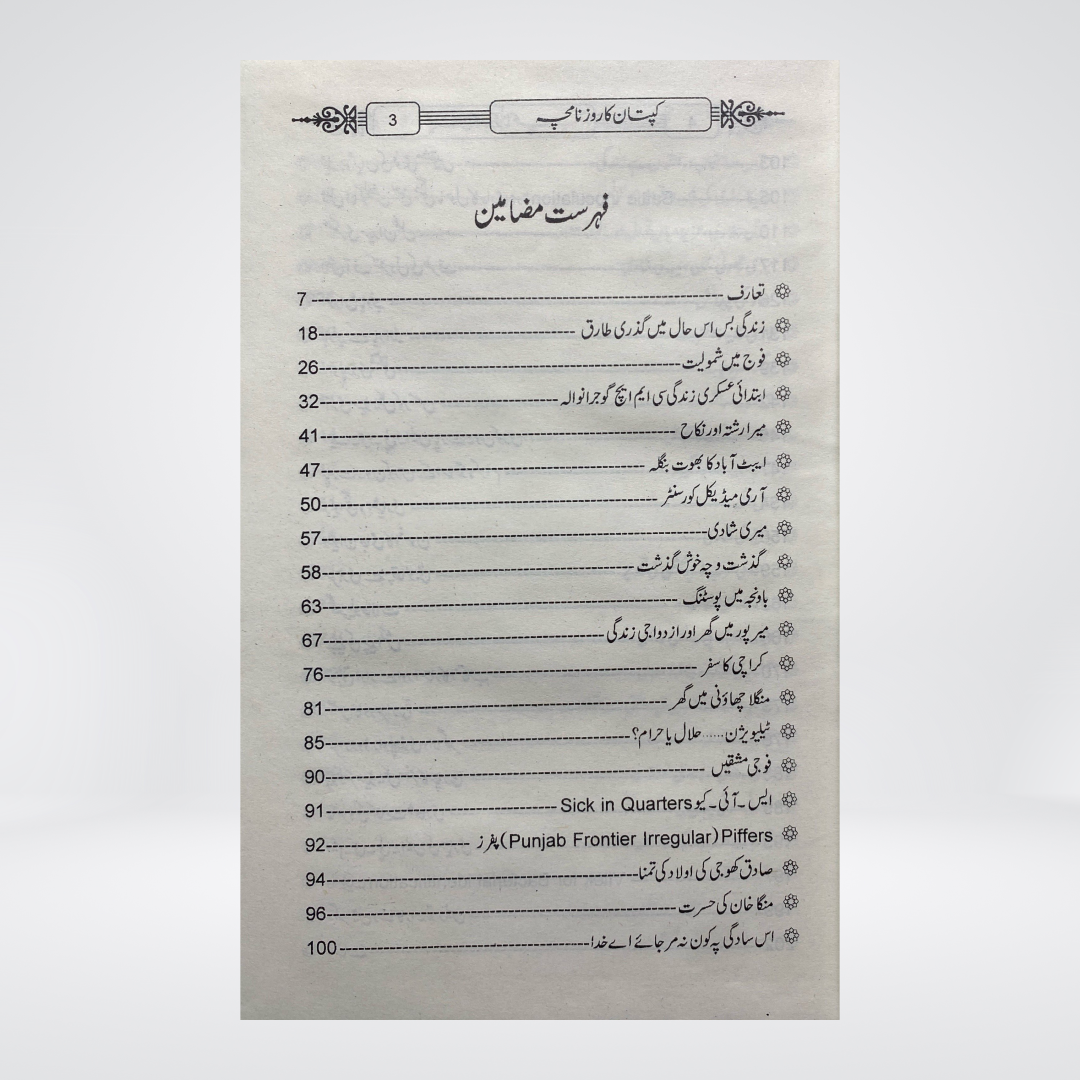 کپتان کا روز نامچہ 3
فہرست مضامین
تعارف 7
زندگی بس اس حال میں گذری طارق 18
فوج میں شمولیت 26
ابتدائی عسکری زندگی سی ایم ایچ گوجرانوالہ 32
میرا رشتہ اور نکاح 41
ایبٹ آباد کا بھوت بنگلہ 47
آرمی میڈیکل کور سنٹر 50
میری شادی 57
گذشت و چہ خوش گذشت 58
باونجہ میں پوسٹنگ 63
میر پور میں گھر اور ازدواجی زندگی 67
کراچی کا سفر 76
منگلا چھاؤنی میں گھر 81
ٹیلیویژن......حلال یا حرام؟ 85
فوجی مشقیں 90
ایس۔آئی۔کیو Sick in Quarters 91
Piffers (Punjab Frontier Irregular) پفرز 92
صادق کھوجی کی اولاد کی تمنا 94
منگا خان کی حسرت 96
اس سادگی پہ کون نہ مر جائے اے خدا 100